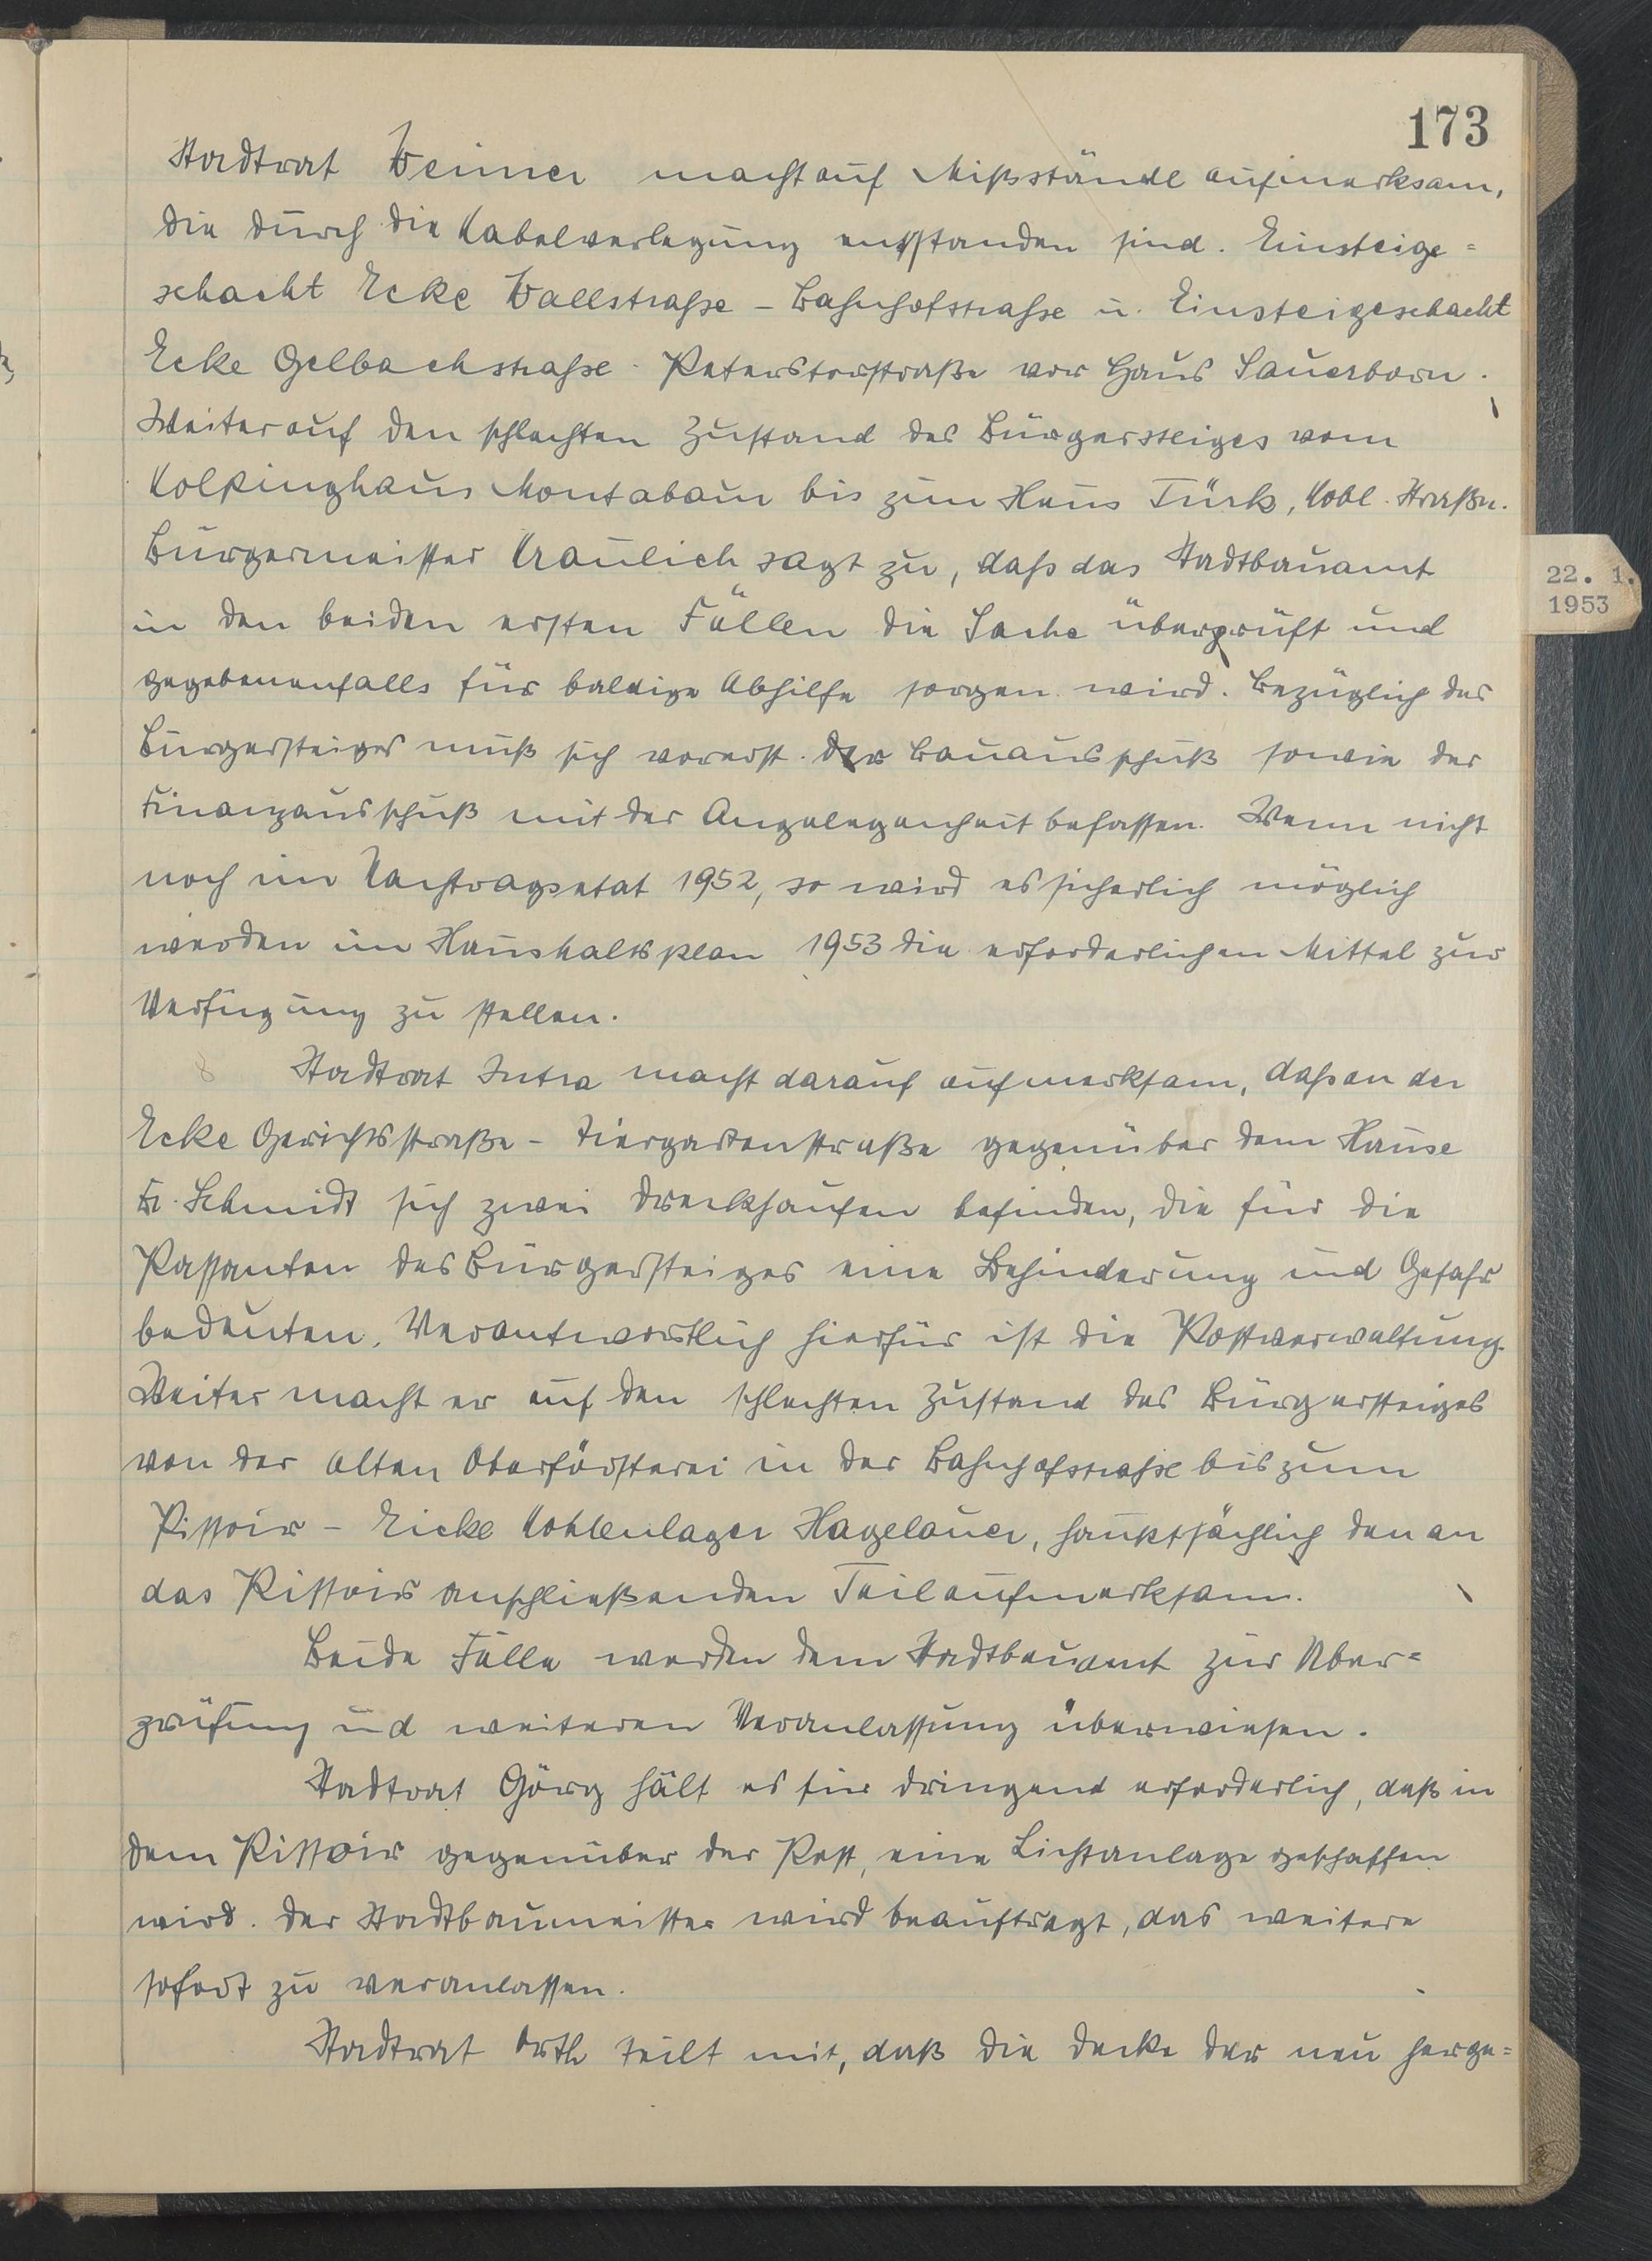 173
Stadtrat Weimer macht auf Mißstände aufmerksam,
die durch die Kabelverlegung entstanden sind. Einsteige=
schacht Ecke Wallstraße - Bahnhofstraße u. Einsteigeschacht
Ecke Gelbachstraße - Peterstorstraße vor Haus Sauerborn.
Weiter auf den schlechten Zustand des Bürgersteiges vom
Kolpinghaus Montabaur bis zum Haus Türk, Kobl. Straße.
Bürgermeister Kraulich sagt zu, daß das Stadtbauamt
in den beiden ersten Fällen die Sache überprüft und
gegebenenfalls für baldige Abhilfe sorgen wird. Bezüglich des
Bürgersteiges muß sich vorerst der Bauausschuß sowie der
Finanzausschuß mit der Angelegenheit befassen. Wenn nicht
noch im Nachtragsetat 1952, so wird es sicherlich möglich
werden im Haushaltsplan 1953 die erforderlichen Mittel zur
Verfügung zu stellen.
Stadtrat Intra macht darauf aufmerksam, daß an der
Ecke Gerichtsstraße - Tiergartenstraße gegenüber dem Hause
Fr. Schmidt sich zwei Dreckhaufen befinden, die für die
Passanten des Bürgersteiges eine Behinderung und Gefahr
bedeuten. Verantwortlich hierfür ist die Postverwaltung.
Weiter macht er auf den schlechten Zustand des Bürgersteiges
von der alten Oberförsterei in der Bahnhofstraße bis zum
Pissoir - Ecke Kohlenlager Hagelauer, hauptsächlich den an
das Pissoir anschließenden Teil aufmerksam.
Beide Fälle werden dem Stadtbauamt zur Über=
prüfung und weiteren Veranlassung überwiesen.
Stadtrat Görg hält es für dringend erforderlich, daß in
dem Pissoir gegenüber der Post, eine Lichtanlage geschaffen
wird. Der Stadtbaumeister wird beauftragt, das weitere
sofort zu veranlassen.
Stadtrat Orth teilt mit, daß die Decke der neu herge=
22. 1.
1953